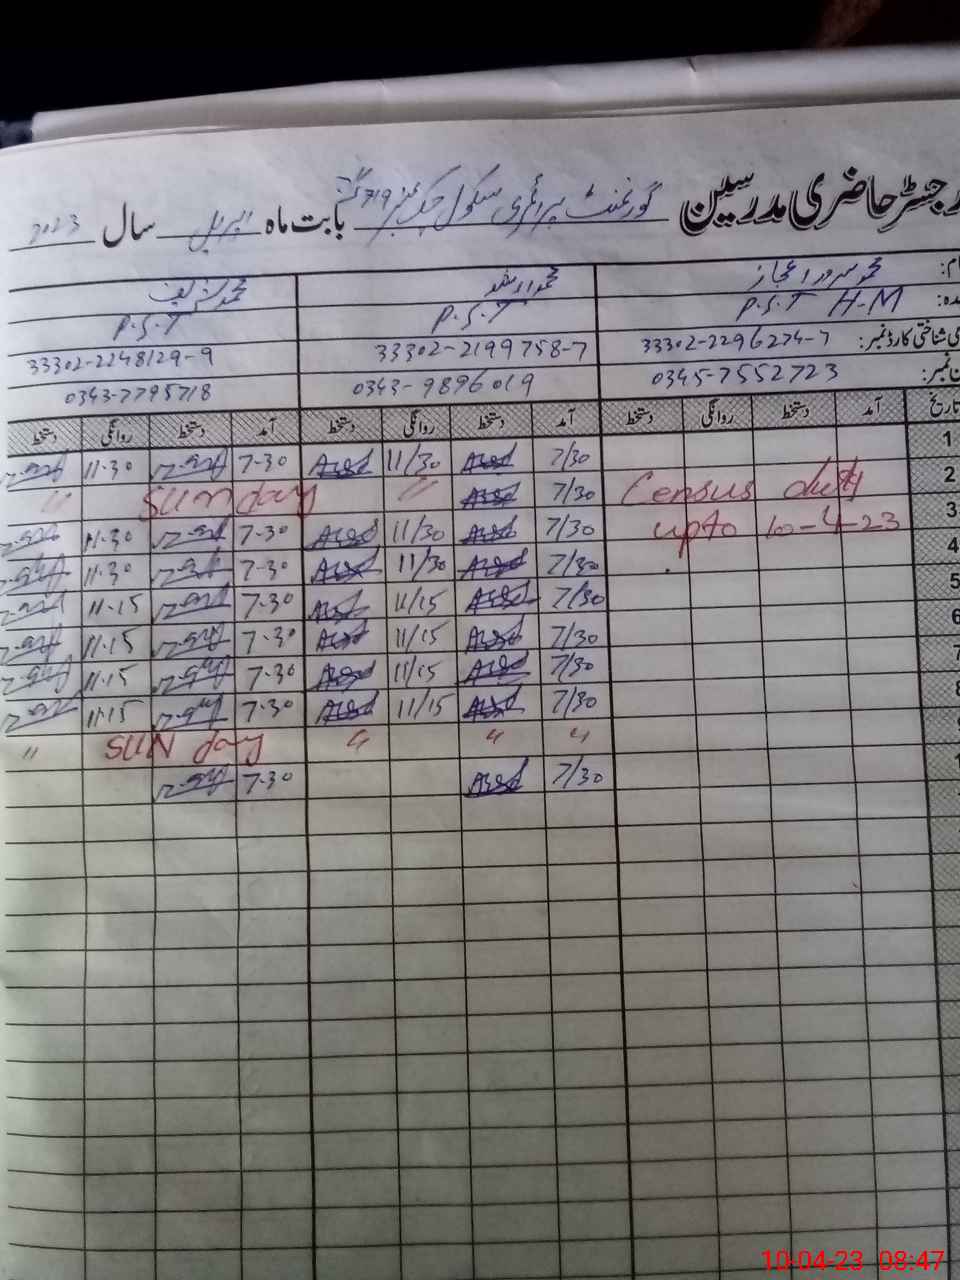 رجسٹر حاضری مدرسین گورنمنٹ پرائمری سکول چک نمبر 719 گ ب بابت ماہ اپریل سال 2023
نام: محمد سرور اعجاز محمد ارشد محمد شریف
عہدہ: P.S.T H-M P.S.T P.S.T
قومی شناختی کارڈ نمبر: 33302-2296274-7 33302-2199758-7 33302-2248129-9
فون نمبر: 0345-7552723 0343-9896019 0343-7795718
تاریخ آمد دستخط روانگی دستخط آمد دستخط روانگی دستخط آمد دستخط روانگی دستخط
1 7/30 11/30 7-30 11-30
2 Census duty 7/30 " SUNday "
3 upto 10-4-23 7/30 11/30 7-30 11-30
4 7/30 11/30 7-30 11-30
5 7/30 11/15 7-30 11-15
6 7/30 11/15 7-30 11-15
7 7/30 11/15 7-30 11-15
8 7/30 11/15 7-30 11-15
9 " " " SUN day "
1 7/30 7-30
10-04-23 08:47